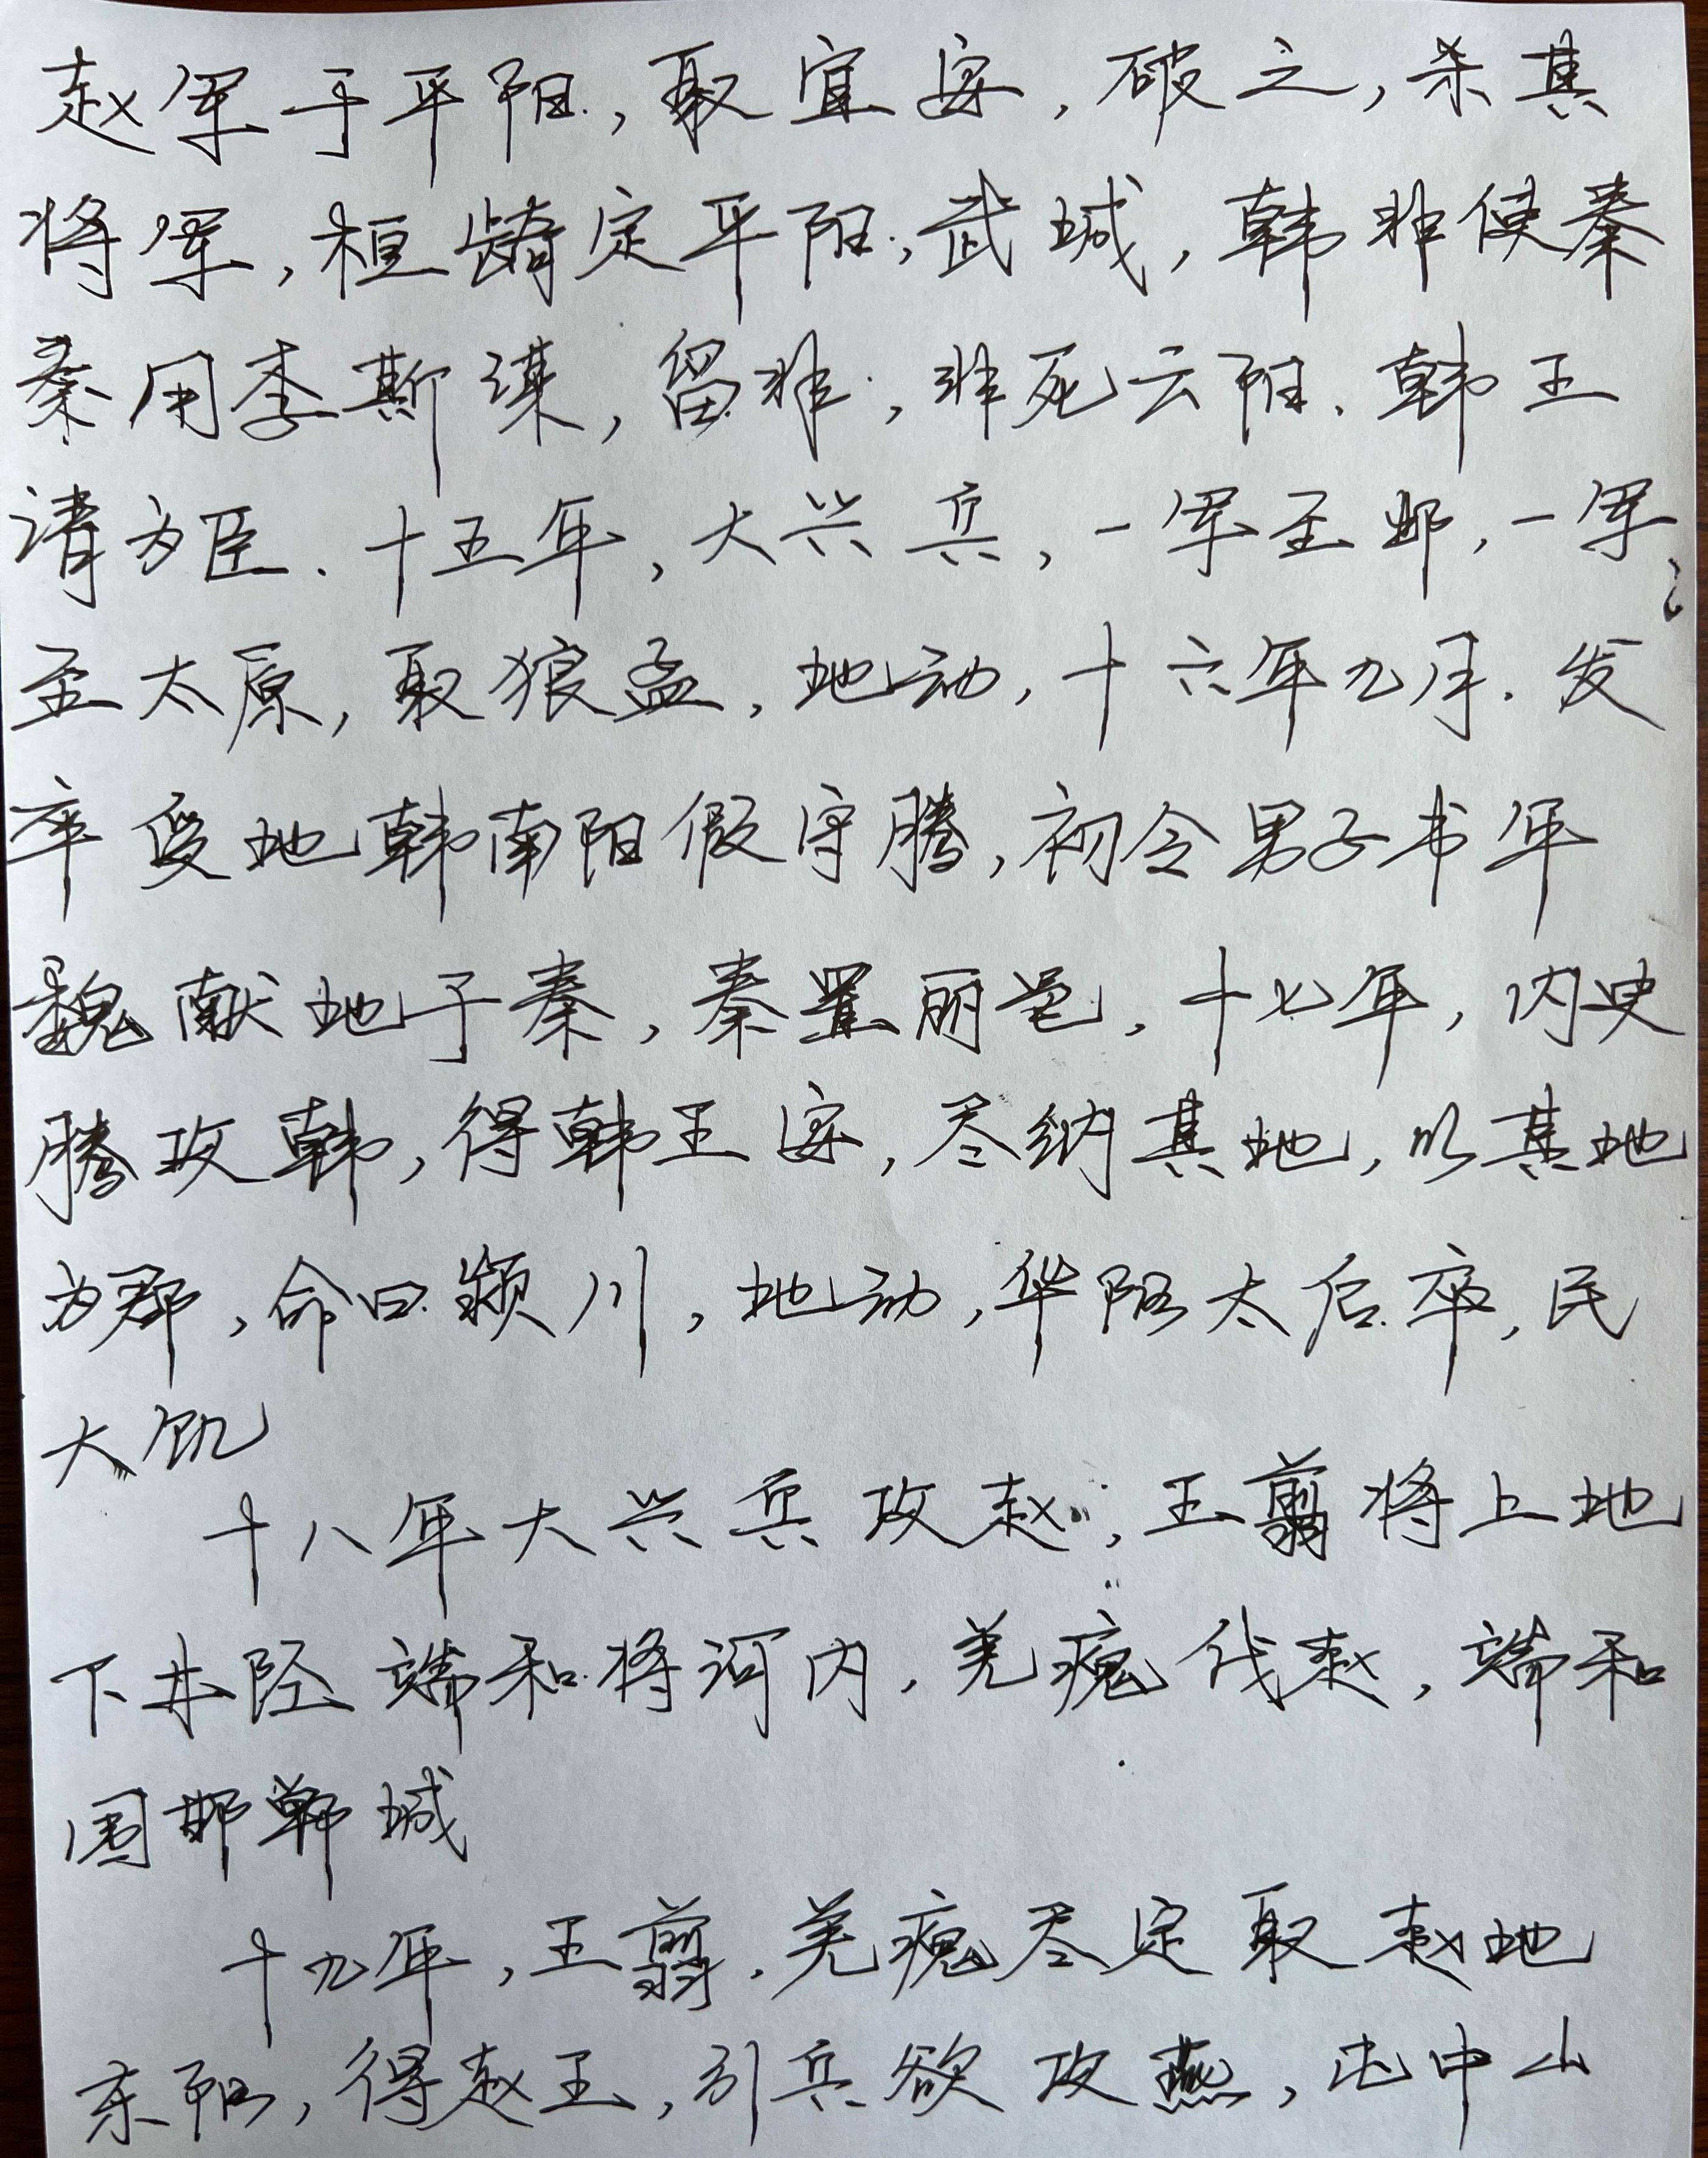 赵军于平阳，取宜安，破之，杀其
将军，桓齮定平阳，武城，韩非使秦
秦用李斯谋，留非，非死云阳．韩王
请为臣．十五年，大兴兵，一军至邺，一军
至太原，取狼孟，地动，十六年九月．发
卒受地韩南阳假守腾，初令男子书年
魏献地于秦，秦置丽邑，十七年，内史
腾攻韩，得韩王安，尽纳其地，以其地
为郡，命曰颍川，地动，华阳太后卒，民
大饥
十八年大兴兵攻赵，王翦将上地
下井陉端和将河内．羌瘣伐赵，端和
围邯郸城
十九年，王翦．羌瘣尽定取赵地
东阳，得赵王，引兵欲攻燕，屯中山